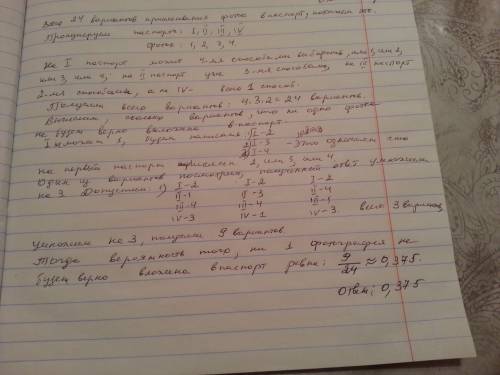 24 вариантов приклеивания фоток в паспорт, покажем это.
Пронумеруем паспорты: I, II, III, IV
фотки: 1, 2, 3, 4.
На I паспорт можно 4-мя способами выбирать, или 1, или 2,
или 3, или 4; на II паспорт уже 3-мя способами, на III паспорт
2-мя способами, а на IV - всего 1 способ.
Получим всего вариантов: 4·3·2=24 вариантов.
сколько вариантов, что ни одно фото
не будет верно вложено в паспорт.
1) I-2
2) I-3 - Это означает что
3) I-4
на первый паспорт приклеим 2, или 3, или 4
Один из вариантов посмотрим, полученный ответ умножим
на 3. Допустим: 1) I-2 I-2 I-2
II-1 II-3 II-4
III-4 III-4 III-1
IV-3 IV-1 IV-3 всего 3 вариан
умножаем на 3, получим 9 вариантов.
Тогда вероятность того, ни 1 фотография не
будет верно вложена в паспорт равна: 9/24 ≈ 0,375
Ответ: 0,375